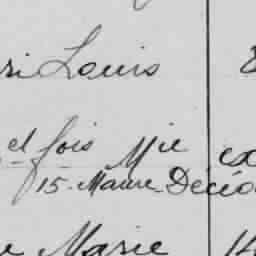 ri Louis
et fois Mie
15. Maure Décé
e Marie